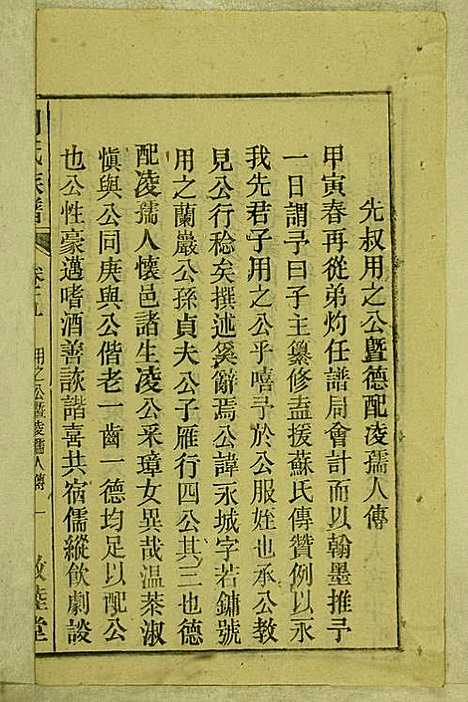 先叔用之公暨德配凌孺人傳
甲寅春再從弟灼任譜局會計而以翰墨推予
一日謂予曰子主纂修盍援蘇氏傳贊例以永
我先君子用之公乎嘻予於公服姪也承公教
見公行稔矣撰述奚辭焉公諱永城字若鏞號
用之蘭巖公孫貞夫公子雁行四公其三也德
配凌孺人懷邑諸生凌公采璋女異哉温恭淑
慎與公同庚與公偕老一齒一德均足以配公
也公性豪邁嗜酒善詼諧喜共宿儒縱飲劇談
氏族譜
用之公暨凌孺人傳 一
敦睦堂